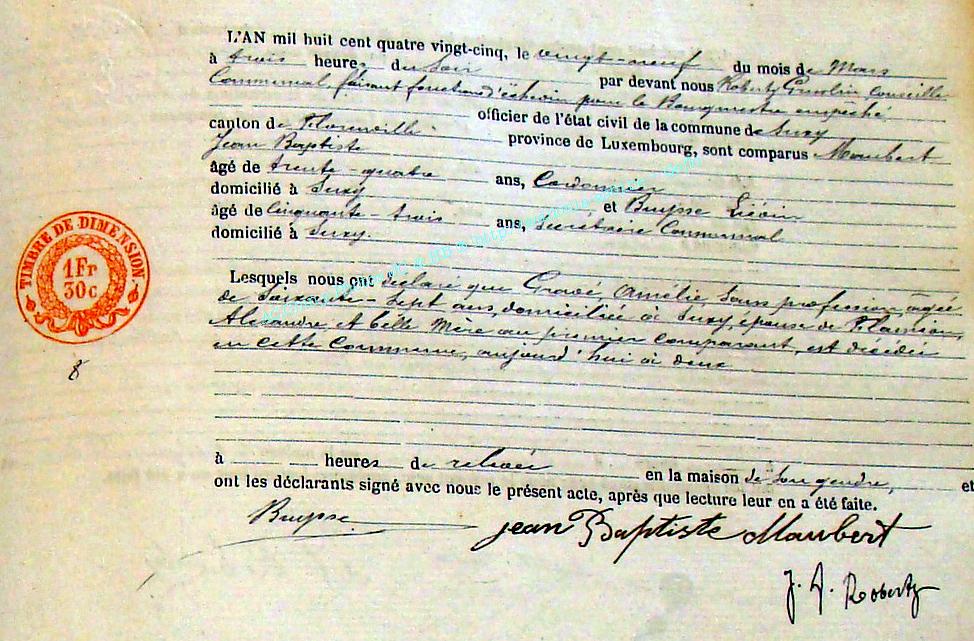 L'AN mil huit cent quatre vingt-cinq, le vingt-neuf du mois de Mars
à trois heures du soir par devant nous Robert, Conseiller
Communal, faisant fonction d'échevin pour le Bourgmestre empêché,
officier de l'état civil de la commune de Suxy
canton de Florenville province de Luxembourg, sont comparus Maubert
Jean Baptiste
âgé de trente-quatre ans, Cordonnier
domicilié à Suxy et Buysse Liévin
âgé de cinquante-trois ans, Secrétaire Communal
domicilié à Suxy.
Lesquels nous ont déclaré que Gravé, Amélie, sans profession, agée
de soixante-sept ans, domiciliée à Suxy, épouse de
Alexandre, et belle mère au premier comparant, est décédée
en cette Commune, aujourd'hui à deux
à heures de relevée en la maison de son gendre, et
ont les déclarants signé avec nous le présent acte, après que lecture leur en a été faite.
Buysse
jean Baptiste Maubert
J. A. Robert
TIMBRE DE DIMENSION
1Fr
30c
8